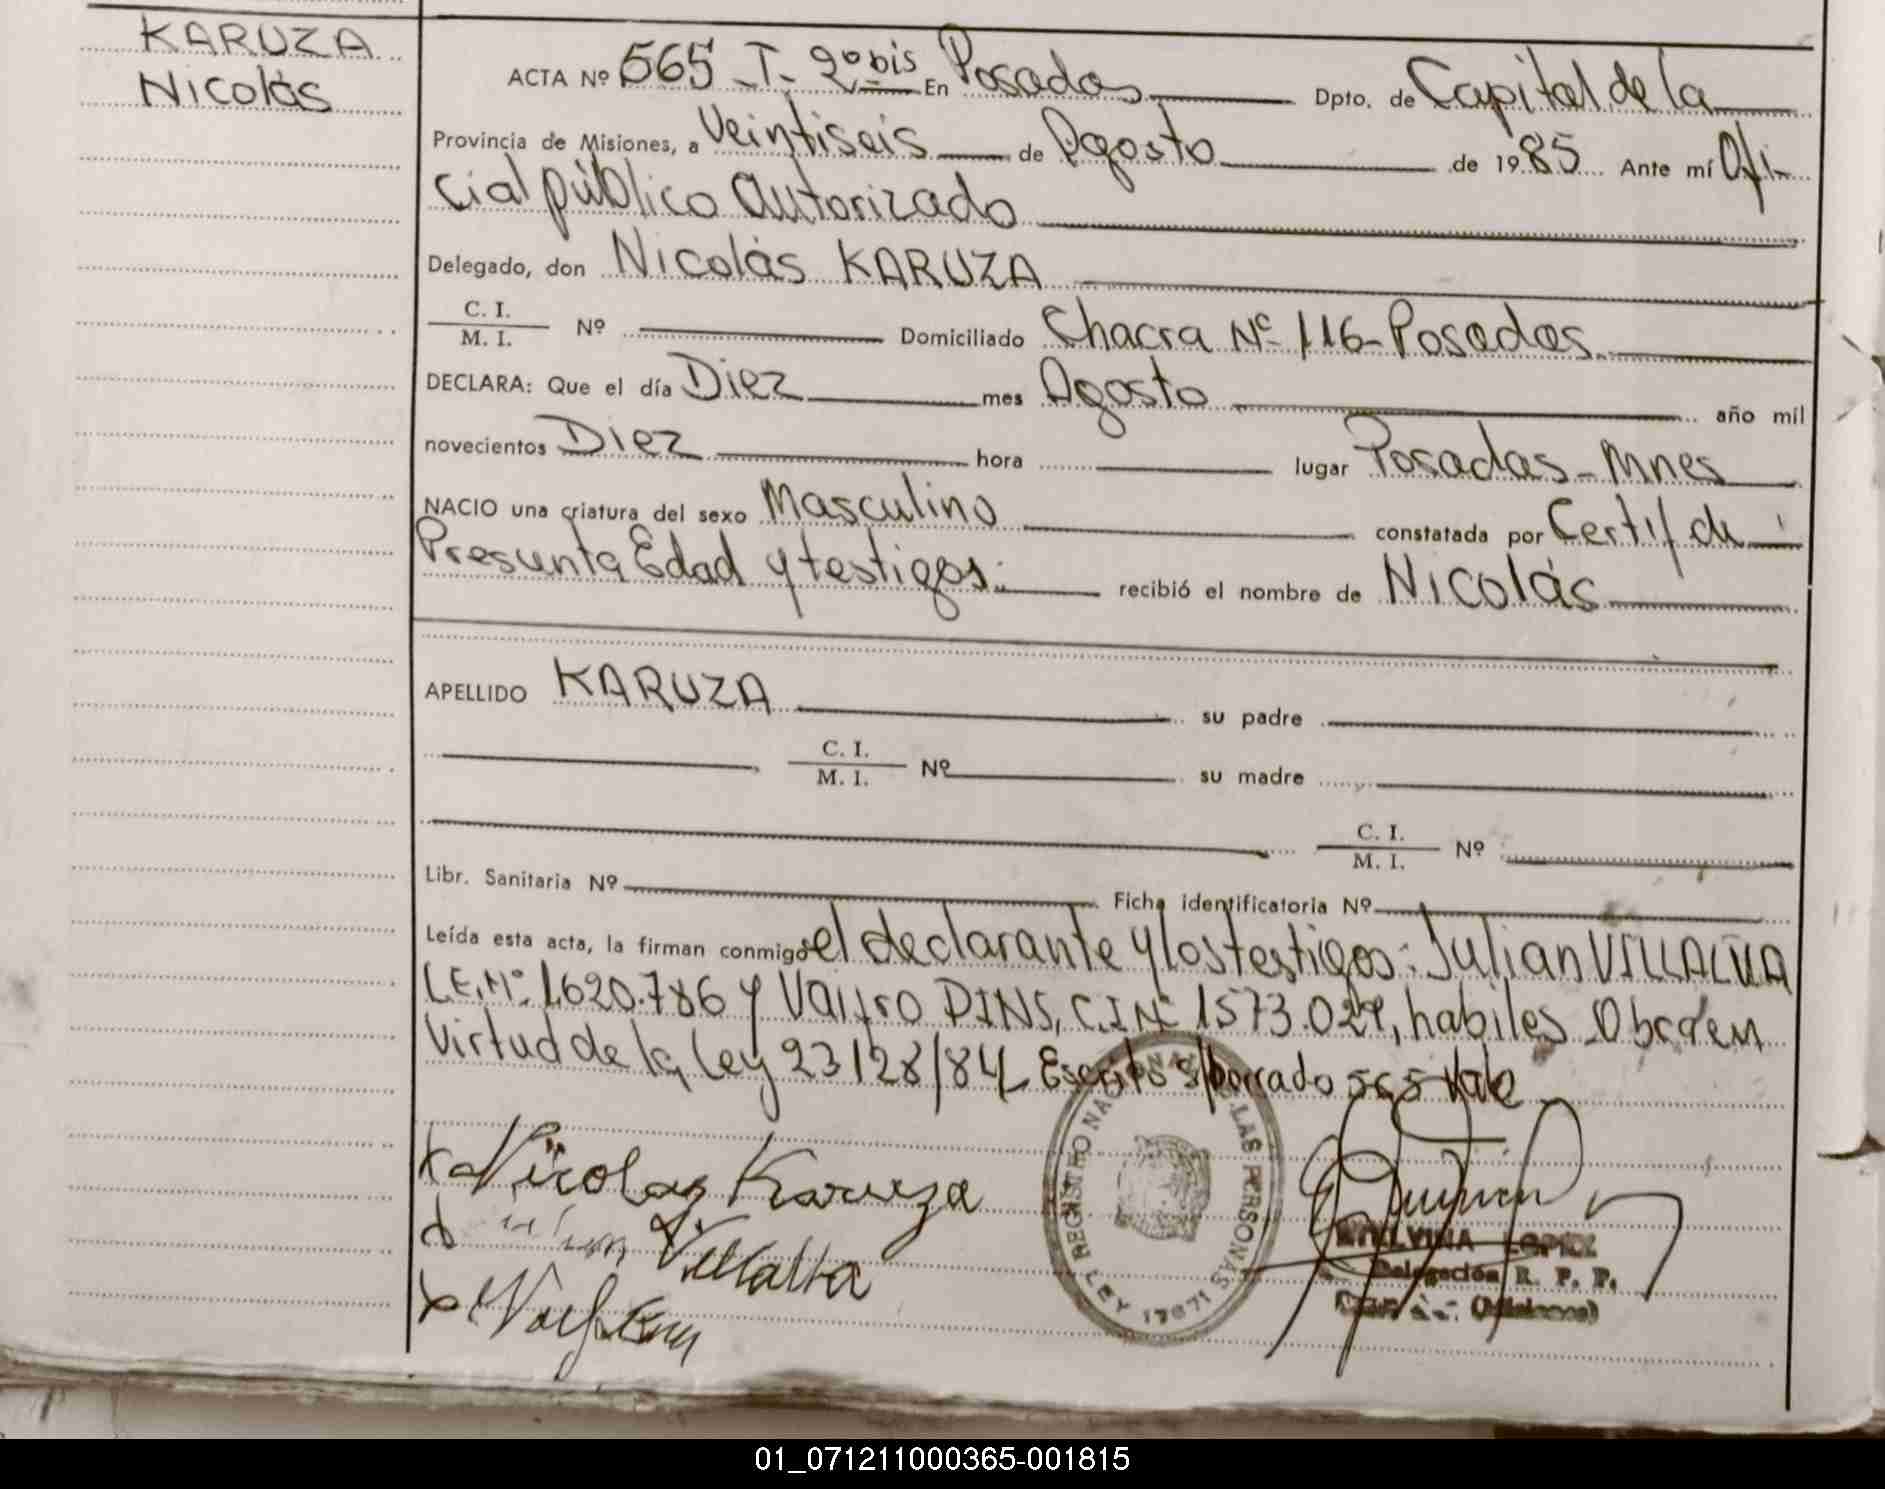 KARUZA
Nicolás
ACTA Nº 565 - T - 2º bis En Posadas Dpto. de Capital de la
Provincia de Misiones, a Veintiseis de Agosto de 1985 Ante mí Ofi-
cial público Autorizado
Delegado, don Nicolás KARUZA
C. I.
M. I. Nº Domiciliado Chacra Nº 116 - Posadas
DECLARA: Que el día Diez mes Agosto año mil
novecientos Diez hora lugar Posadas - Mnes
NACIO una criatura del sexo Masculino constatada por Certif de
Presunta Edad y testigos. recibió el nombre de Nicolás
APELLIDO KARUZA su padre
C. I.
M. I. Nº su madre
C. I.
M. I. Nº
Libr. Sanitaria Nº Ficha identificatoria Nº
Leída esta acta, la firman conmigo el declarante y los testigos: Julian VILLALVA
L.E.Nº 1.620.786 y DINS, C.I.Nº 1573.029, habiles - Obra en
Virtud de la Ley 23128/84 - Escrito s/borrado 565 Vale
x Nicolas Karuza
Villalba
REGISTRO NACIONAL DE LAS PERSONAS
LEY 17671
LOPEZ
Delegación R. P. P.
(Misiones)
01_071211000365-001815